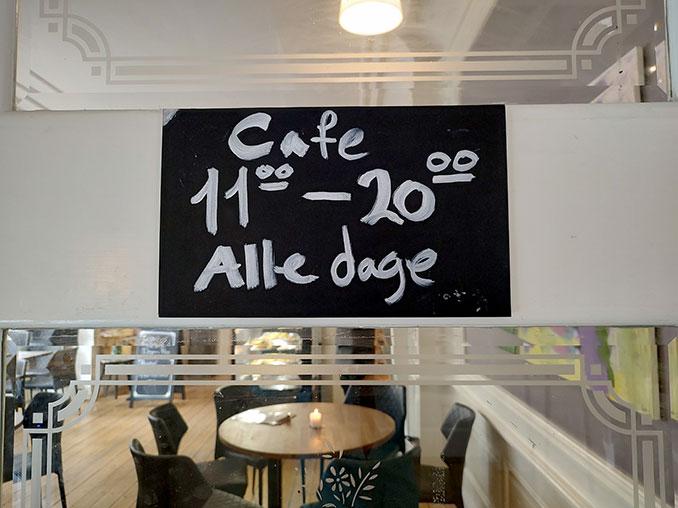 Cafe
11⁰⁰ - 20⁰⁰
Alle dage